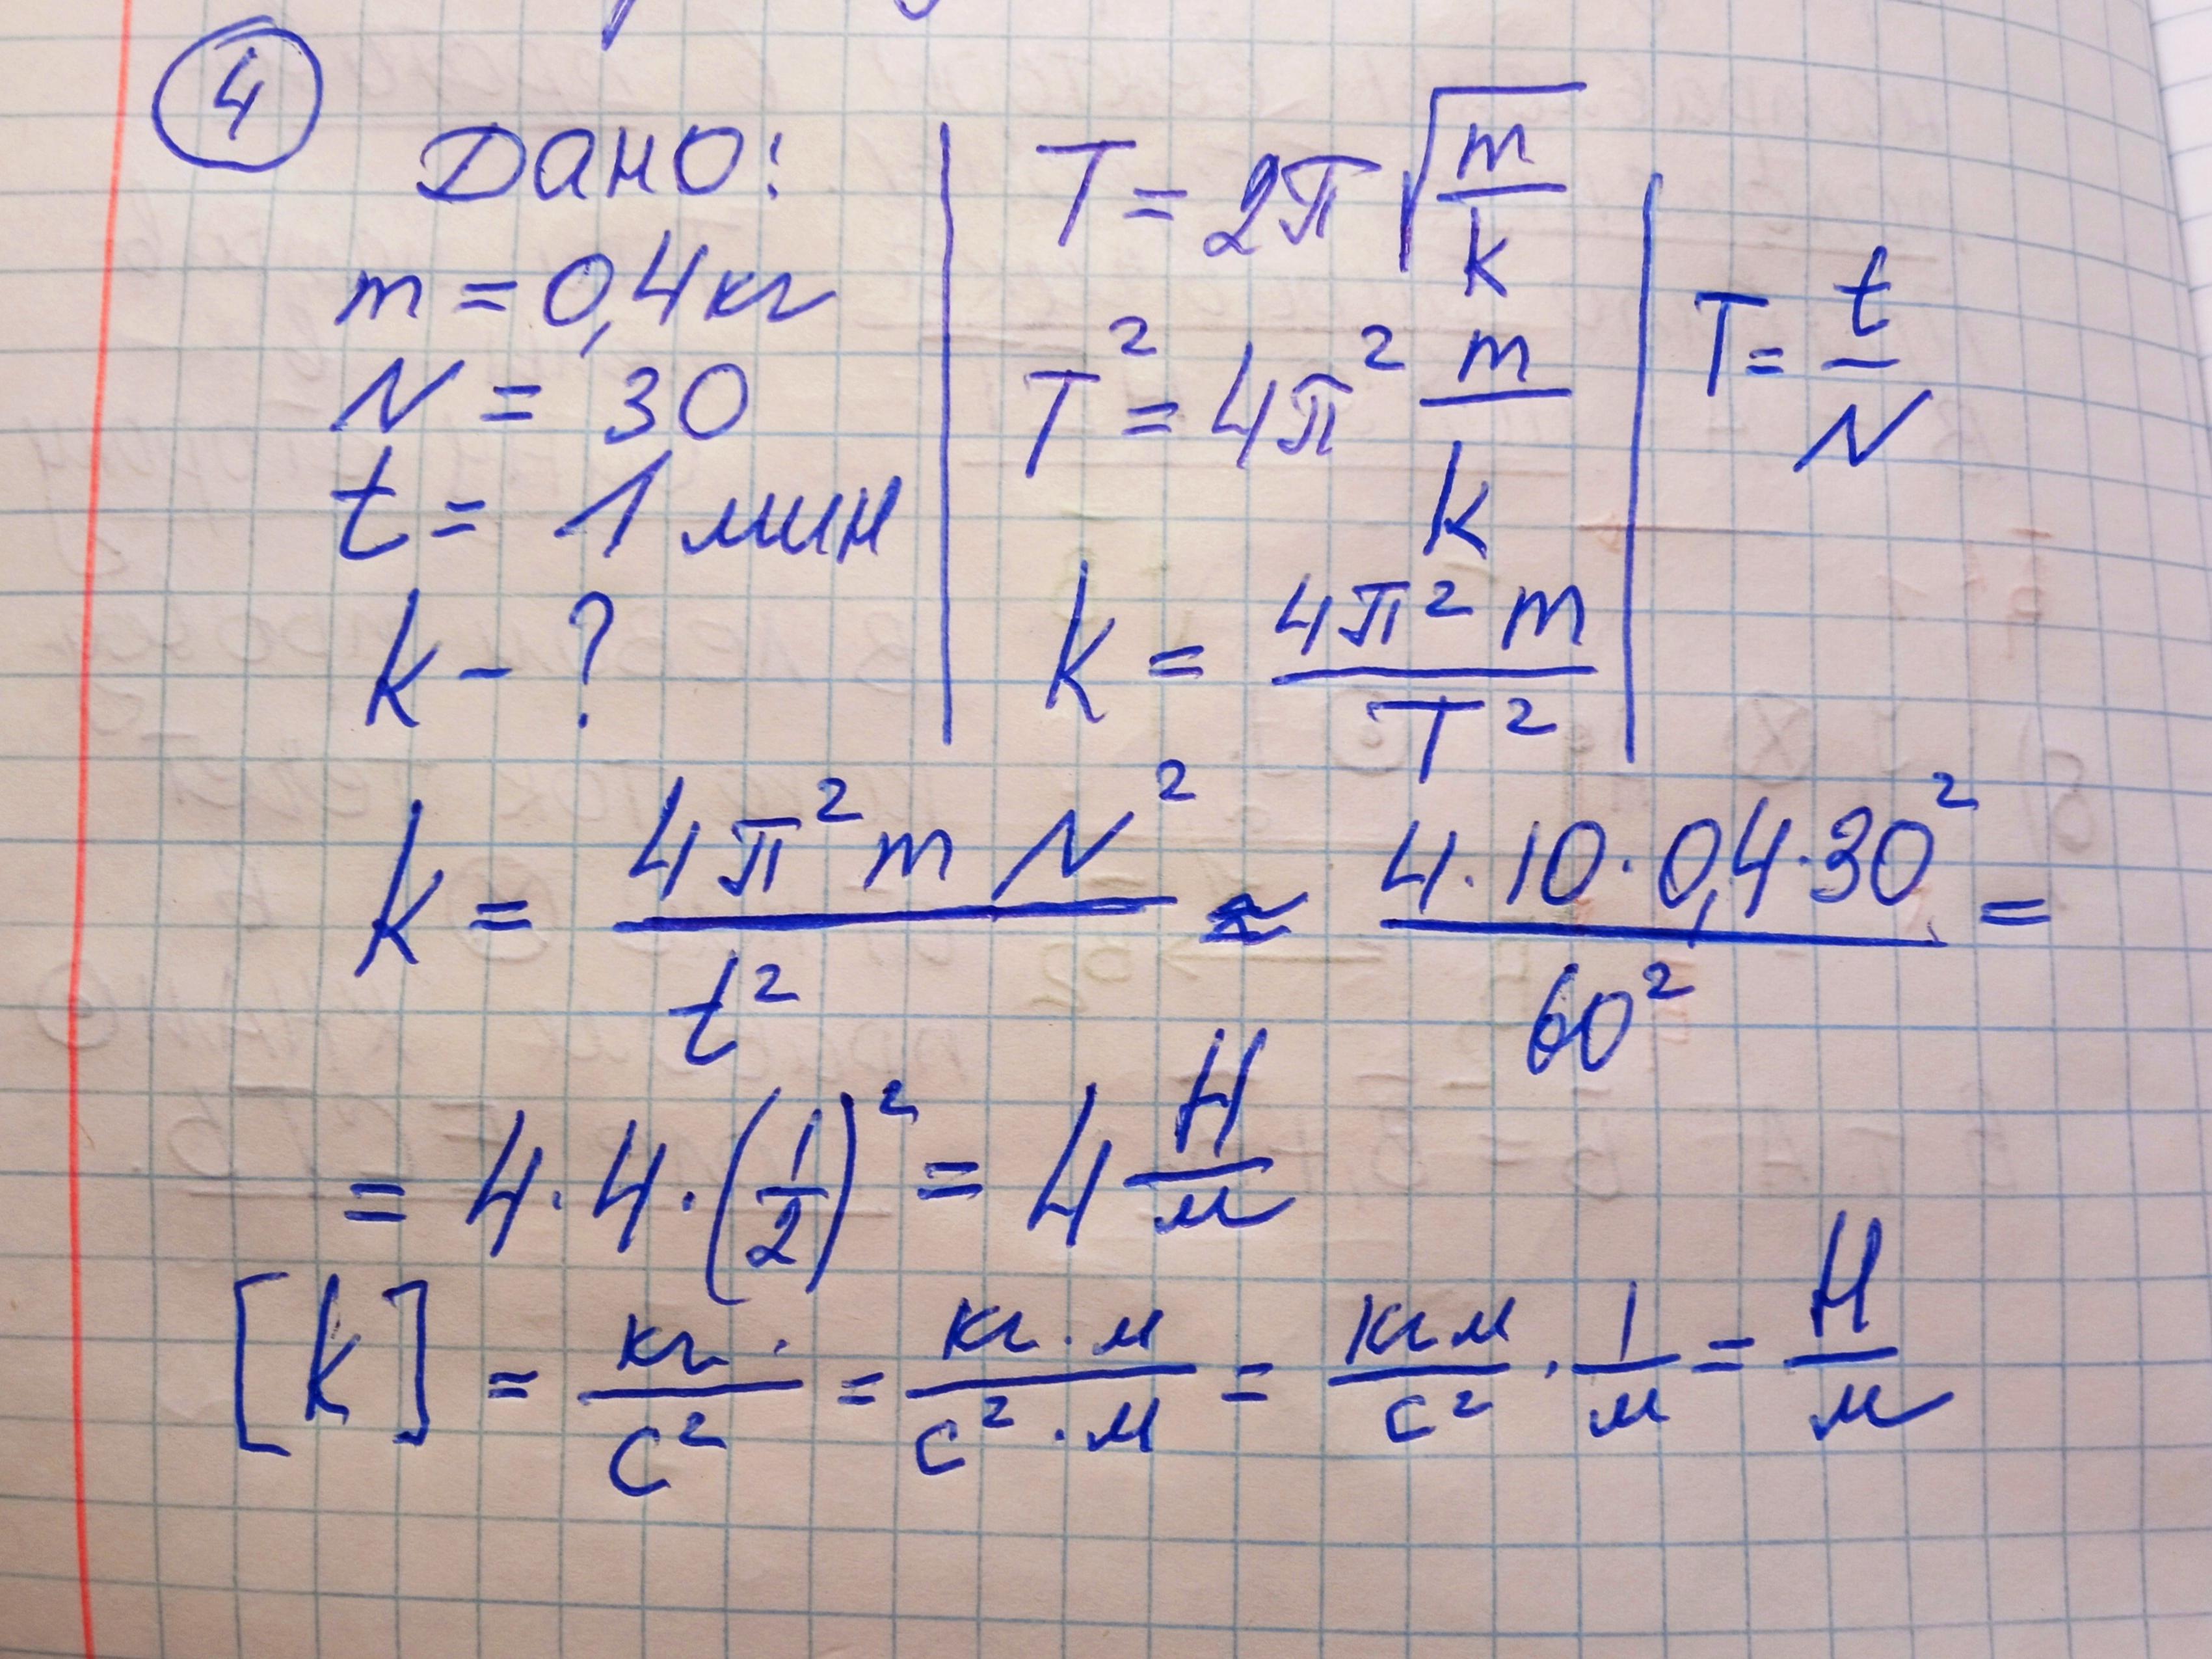 4
Дано:
m = 0,4 кг
N = 30
t = 1 мин
k - ?
T = 2π √(m/k)
T² = 4π² m/k
k = 4π² m / T²
T = t/N
k = 4π² m N² / t² ≈ 4·10·0,4·30² / 60² =
= 4·4·(1/2)² = 4 Н/м
[k] = кг·/с² = кг·м/с²·м = кгм/с² · 1/м = Н/м